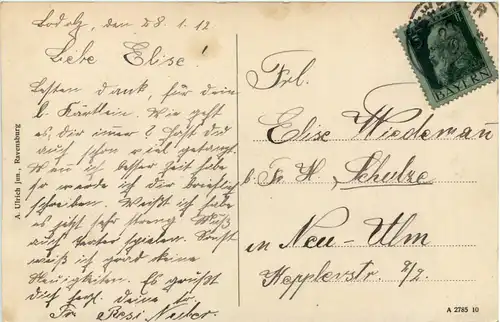 Bodolz, den 28.1.12
Liebe Elise!
Besten Dank, für dein
l. Kärtlein. Wie geht
es dir immer? Hast du
auch schon viel getanzt.
Wen ich besser Zeit habe
so werde ich dir brieflich
schreiben. Weißt ich habe
es jetzt sehr streng. Muß
auch Teater spielen. Sonst
weiß ich grad keine
Neuigkeiten. Es grüßt
dich herzl. deine tr.
Fr. Resi Neuber.
A. Ulrich jun., Ravensburg
BAYERN
Frl.
Elise Wiedeman
b. Fr. H. Schulze
in Neu-Ulm
Kepplerstr.
A 2785 10